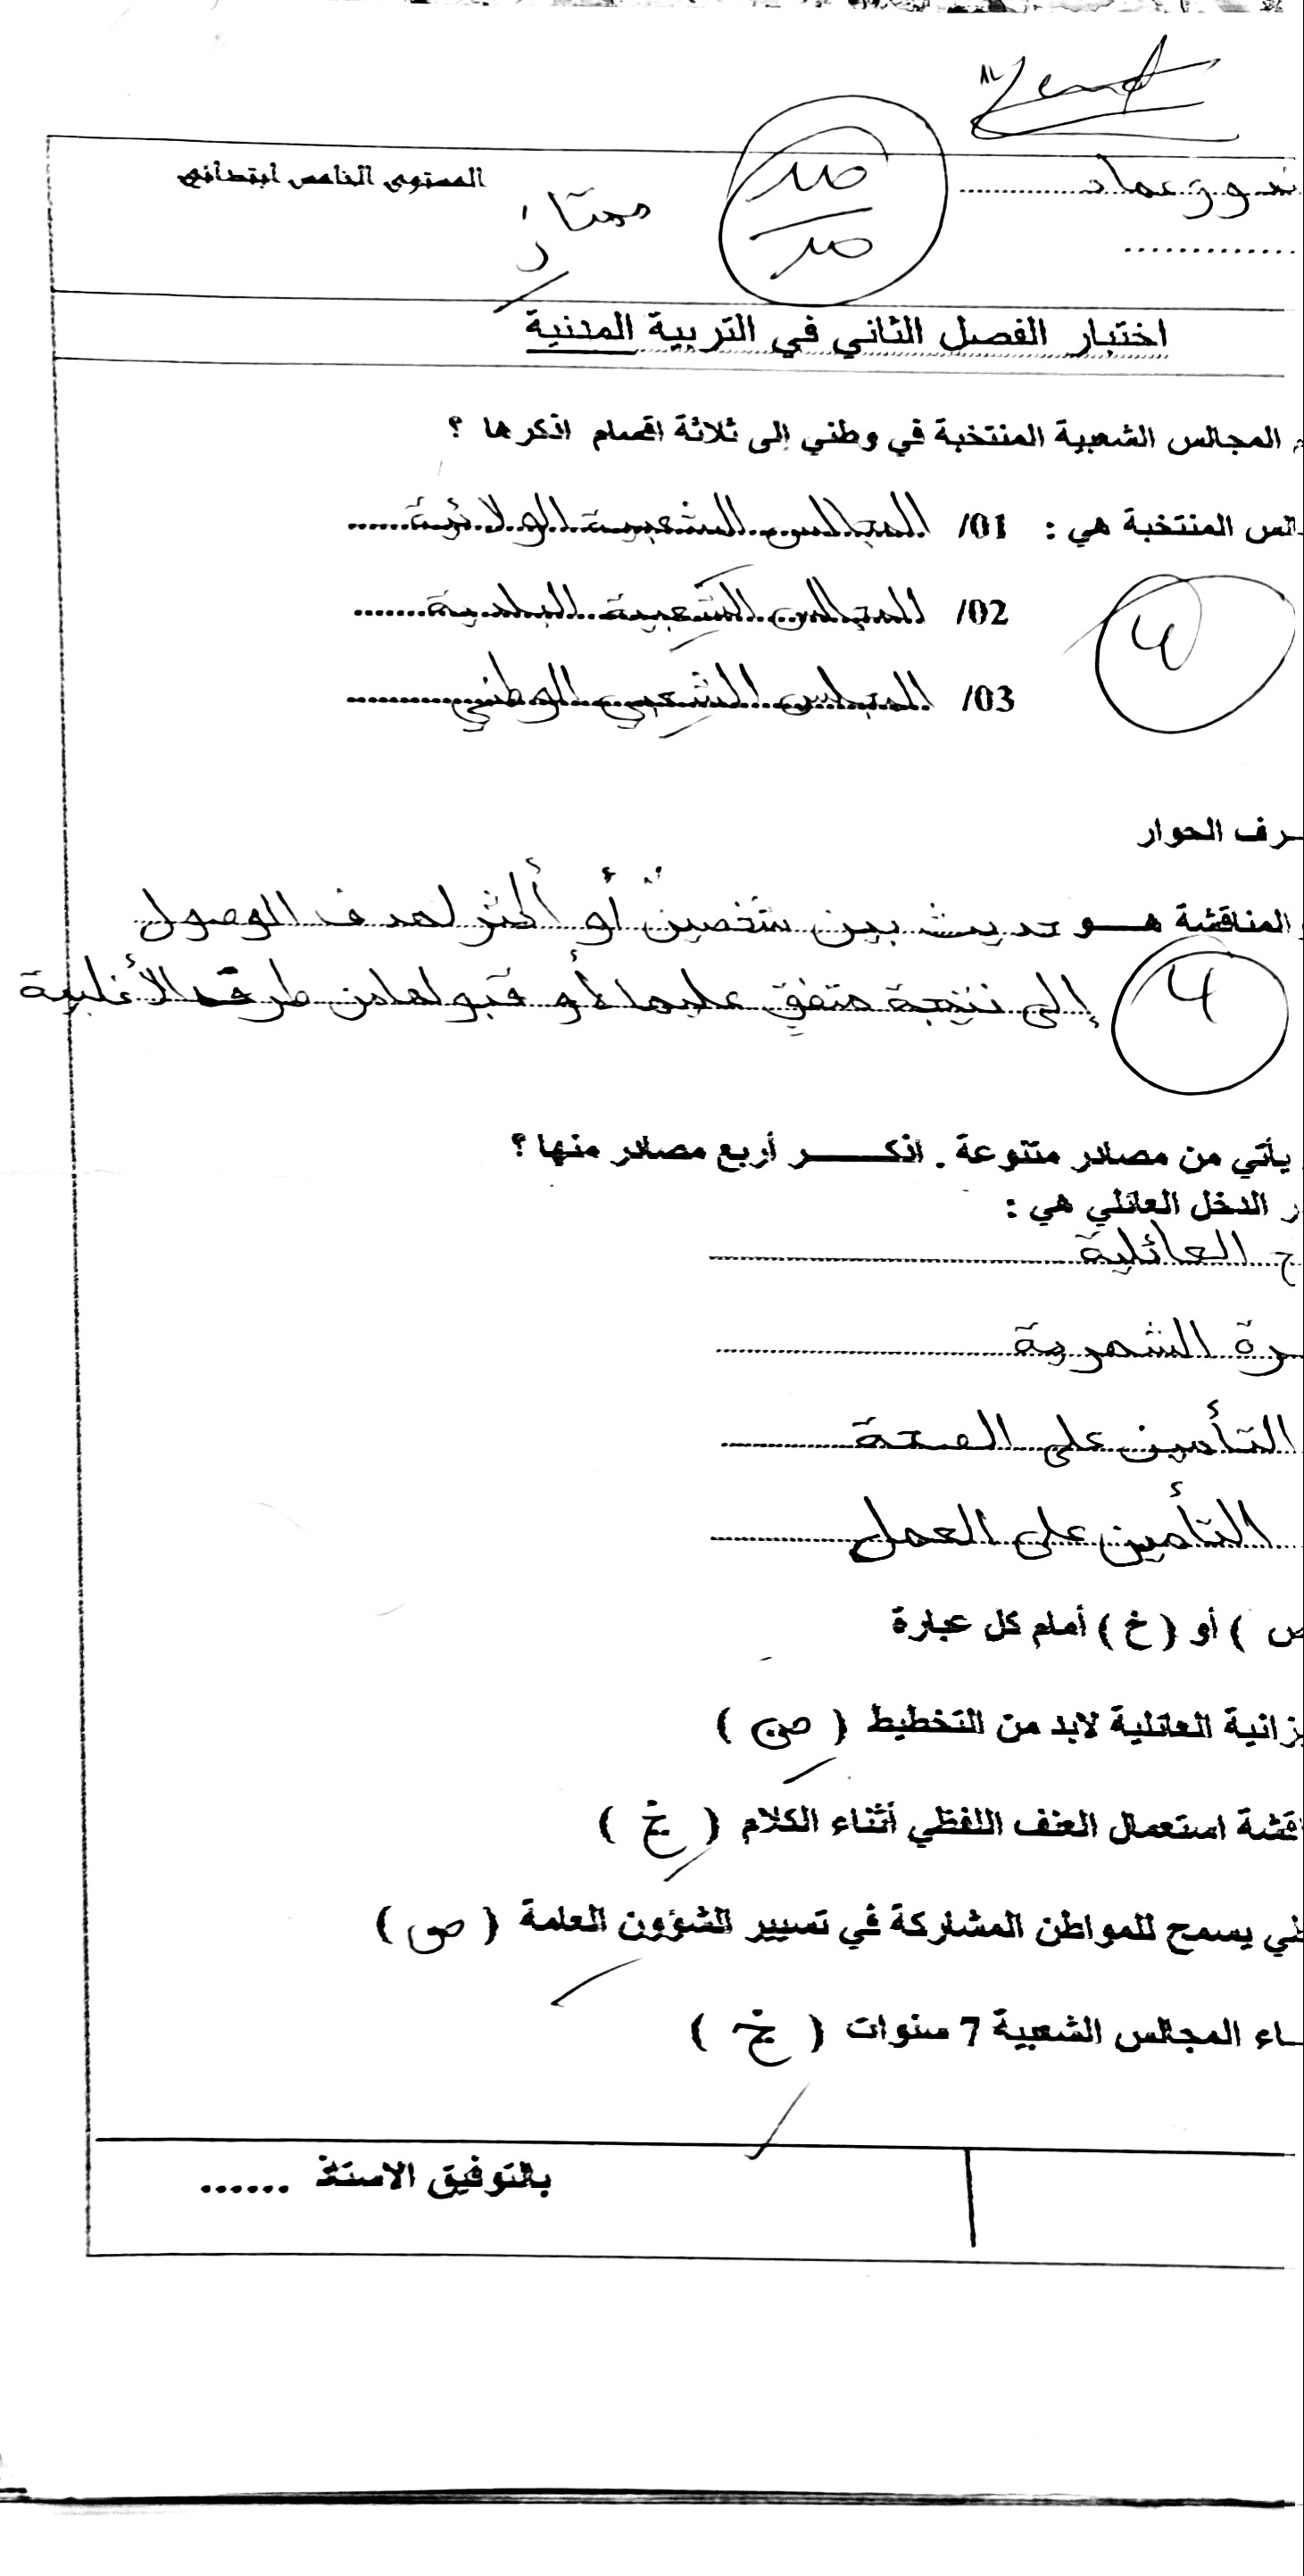 المستوى الخامس ابتدائي
ممتاز
اختبار الفصل الثاني في التربية المدنية
المجالس الشعبية المنتخبة في وطني إلى ثلاثة اقسام اذكرها ؟
المنتخبة هي : 01/ المجالس الشعبية الولائية
02/ المجالس الشعبية البلدية
03/ المجلس الشعبي الوطني
4
الحوار
المناقشة هو حديث بين شخصين أو أكثر لهدف الوصول
إلى نتيجة متفق عليها أو قبولها من طرف الأغلبية
4
يأتي من مصادر متنوعة . اذكر أربع مصادر منها ؟
الدخل العائلي هي :
العائلية
الشهرية
التأمين على الصحة
التأمين على العمل
) أو ( خ ) أمام كل عبارة
العائلية لابد من التخطيط ( ص )
استعمال العنف اللفظي أثناء الكلام ( خ )
يسمح للمواطن المشاركة في تسيير الشؤون العامة ( ص )
المجالس الشعبية 7 سنوات ( خ )
بالتوفيق الاستاذ ......